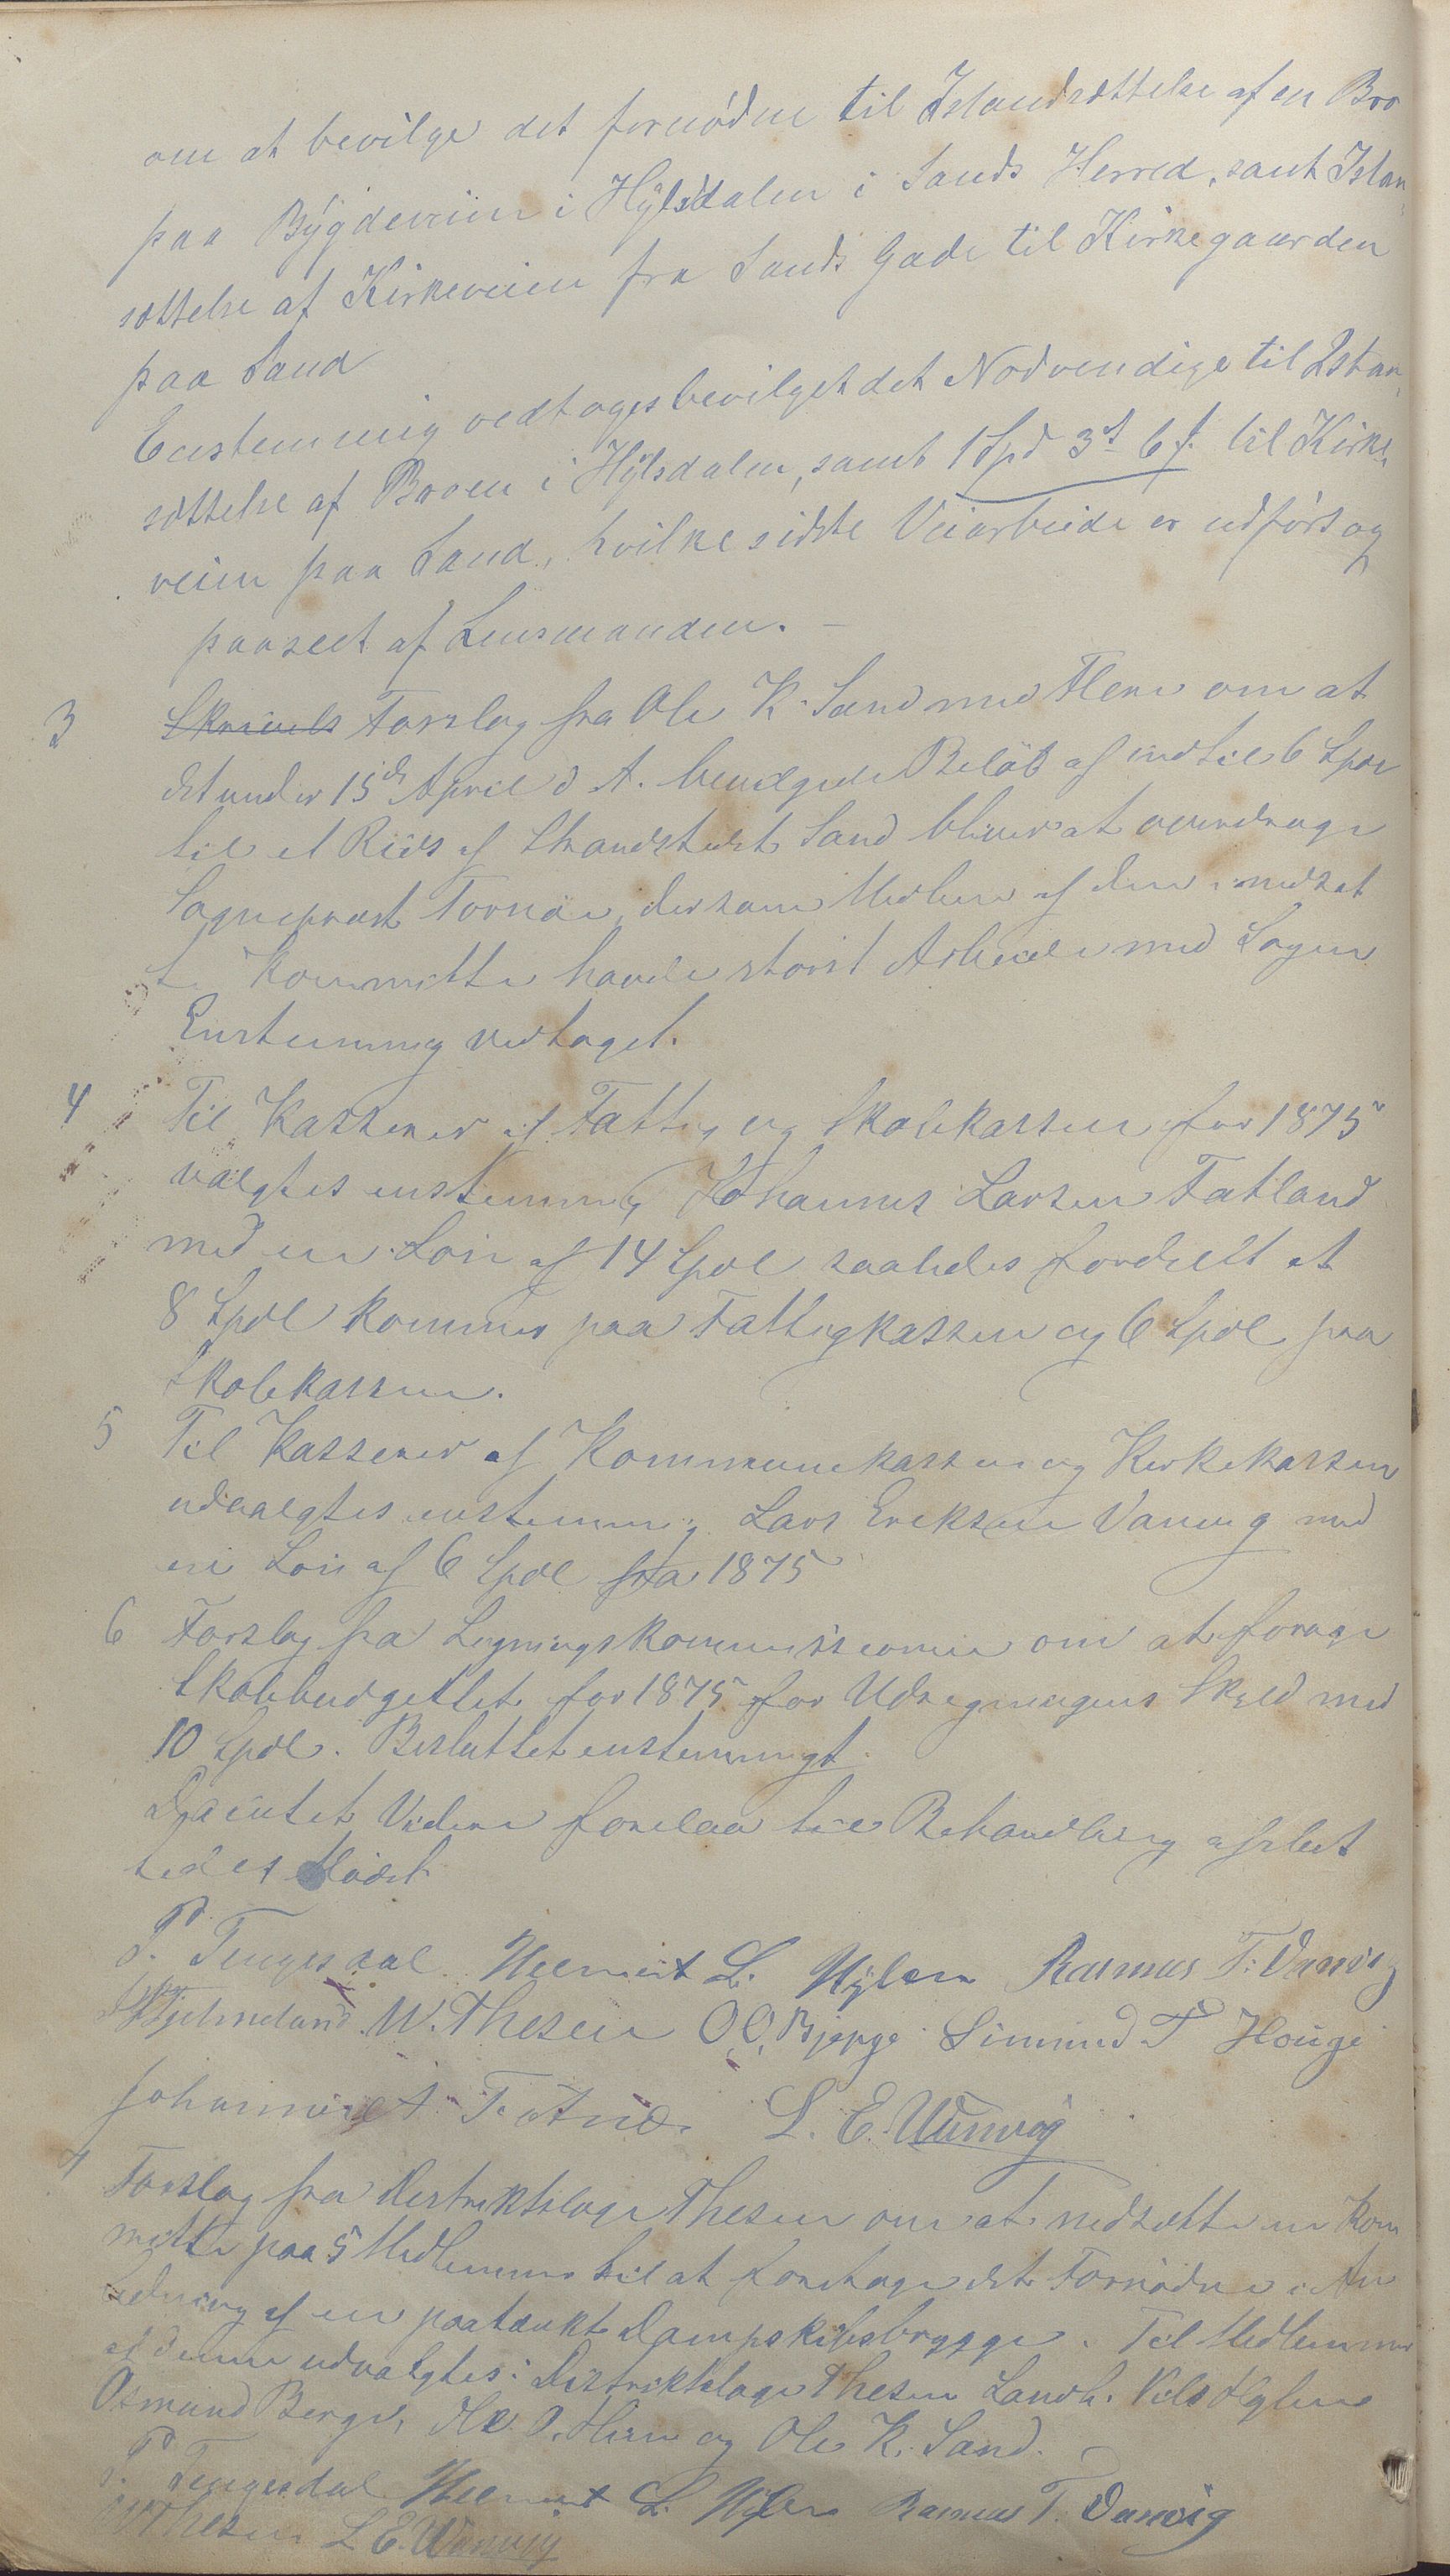 om at bevilge det fornødne til Istandsættelse af en Bro
paa Bÿgdeveien i Hÿlsdalen i Sands Herred, samt Istan-
sættelse af Kirkeveien fra Sands Gade til Kirkegaarden
paa Sand
Enstemmig vedtoges bevilget det Nødvendige til Istan-
sættelse af Broen i Hÿlsdalen, samt 1 Spd 3 t 6 s. til Kirke-
veien paa Sand, hvilke sidste Veiarbeide er udført og
paaseet af Lensmanden. –
3 Forslag fra Ole K. Sand med Flere om at
det under 15de April d. A. bevilgede Beløb af indtil 6 Spdl
til et Rids af Strandstedet Sand bliver at overdrage
Sognepræst Tornøe, der som Medlem af den nedsat
te Kommitte havde størst Arbeide med Sagen
Enstemmig vedtaget.
4 Til Kasserer af Fattig og Skolekassen for 1875
valgtes enstemmig Johannes Larsen Fatland
med en Løn af 14 Spdl saaledes fordelt at
8 Spdl kommer paa Fattigkassen og 6 Spdl paa
Skolekassen.
5 Til Kasserer af Kommunekassen og Kirkekassen
udvalgtes enstemmig Lars Eriksen Vanvig med
en Løn af 6 Spdl fra 1875
6 Forslag fra Ligningskommissionen om at forøge
Skolebudgettet for 1875 for Udregningens Skyld med
10 Spdl. Besluttet enstemmigt.
Da intet Videre forelaa til Behandling afslut
tedes Mødet
P. Tengesdal Helmert L. Hÿlen Rasmus T. Vanvig
Hjelmeland W. Thesen O. O. Bjerge Simund T Houge
Johannes L. E. Wanvig
7 Forslag fra Distriktslæge Thesen om at nedsætte en Kom
mitte paa 5 Medlemmer til at foretage det Fornødne i An
ledning af en paatænkt Dampskibsbrygge. Til Medlemmer
af denne udvalgtes: Distriktslæge Thesen Landh. Nils Hylen
Osmund Berge, og Ole K. Sand.
P. Tengesdal Helmert L. Hÿlen Rasmus T. Vanvig
W Thesen L E. Wanvig